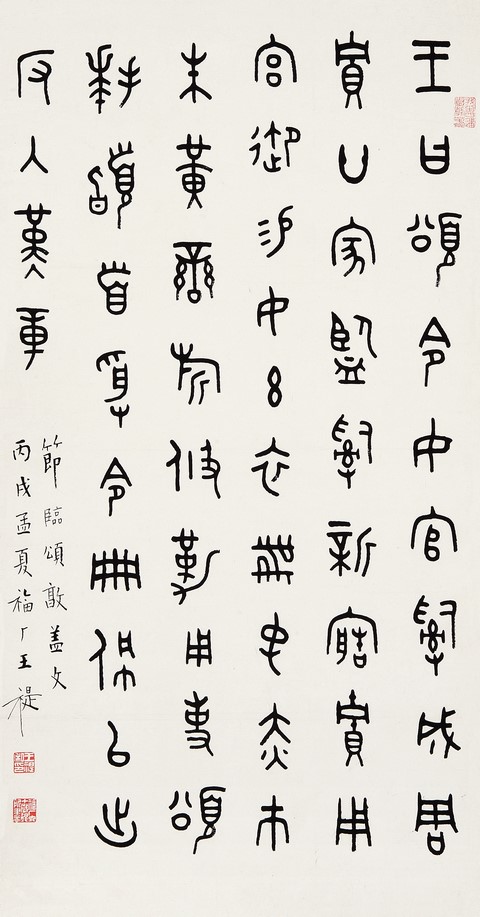 王曰頌令女官𤔲成周
貯廿家監𤔲新造貯用
宮御易女玄衣黹屯赤市
朱黃䜌旂攸勒用事頌
拜䭫首受令冊佩以出
反入堇章
節臨頌敦蓋文
丙戌孟夏福厂王禔